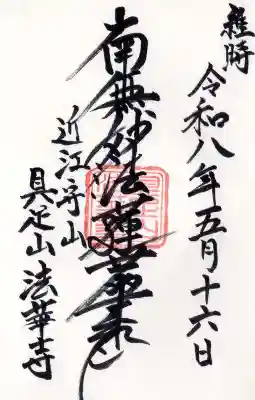 雑時
令和八年五月十六日
南無妙法蓮華経
近江守山
具足山法華寺